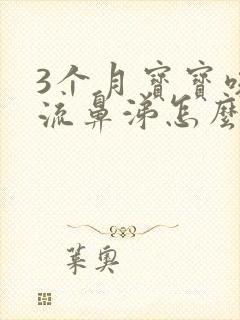 3个月寶寶咳
流鼻涕怎麼
葉奥